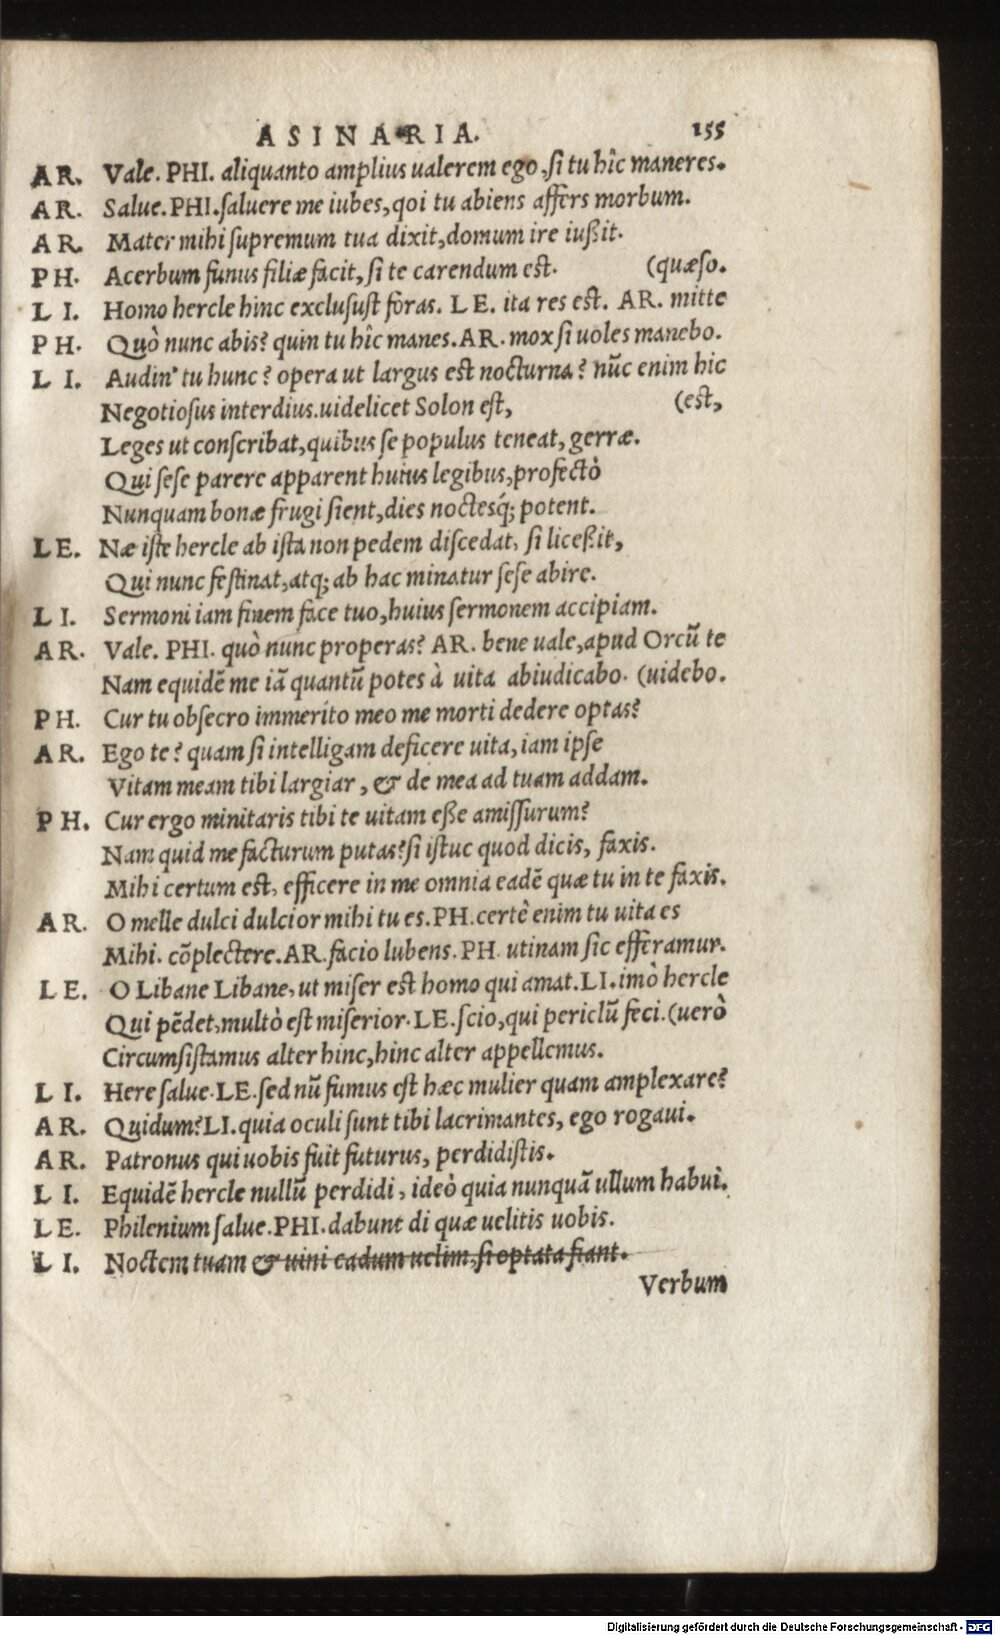 ASINARIA. 155
AR. Vale. PHI. aliquanto amplius ualerem ego, si tu hîc maneres.
AR. Salue. PHI. saluere me iubes, qoi tu abiens affers morbum.
AR. Mater mihi supremum tua dixit, domum ire iußit.
PH. Acerbum funus filiæ facit, si te carendum est. (quæso.
LI. Homo hercle hinc exclusust foras. LE. ita res est. AR. mitte
PH. Quò nunc abis? quin tu hîc manes. AR. mox si uoles manebo.
LI. Audin' tu hunc? opera ut largus est nocturna? nūc enim hic
Negotiosus interdius. uidelicet Solon est, (est,
Leges ut conscribat, quibus se populus teneat, gerræ.
Qui sese parere apparent huius legibus, profectò
Nunquam bonæ frugi sient, dies noctesq́; potent.
LE. Næ iste hercle ab ista non pedem discedat, si liceßit,
Qui nunc festinat, atq; ab hac minatur sese abire.
LI. Sermoni iam finem face tuo, huius sermonem accipiam.
AR. Vale. PHI. quò nunc properas? AR. bene uale, apud Orcū te
Nam equidē me iā quantū potes à uita abiudicabo. (uidebo.
PH. Cur tu obsecro immerito meo me morti dedere optas?
AR. Ego te? quam si intelligam deficere uita, iam ipse
Vitam meam tibi largiar, & de mea ad tuam addam.
PH. Cur ergo minitaris tibi te uitam eße amissurum?
Nam quid me facturum putas? si istuc quod dicis, faxis.
Mihi certum est, efficere in me omnia eadē quæ tu in te faxis.
AR. O melle dulci dulcior mihi tu es. PH. certè enim tu uita es
Mihi. cōplectere. AR. facio lubens. PH. utinam sic efferamur.
LE. O Libane Libane, ut miser est homo qui amat. LI. imò hercle
Qui pēdet, multò est miserior. LE. scio, qui periclū feci. (uerò
Circumsistamus alter hinc, hinc alter appellemus.
LI. Here salue. LE. sed nū fumus est hæc mulier quam amplexare?
AR. Quidum? LI. quia oculi sunt tibi lacrimantes, ego rogaui.
AR. Patronus qui uobis fuit futurus, perdidistis.
LI. Equidē hercle nullū perdidi, ideò quia nunquā ullum habui.
LE. Philenium salue. PHI. dabunt di quæ uelitis uobis.
LI. Noctem tuam & uini cadum uelim, si optata fiant.
Verbum
Digitalisierung gefördert durch die Deutsche Forschungsgemeinschaft - DFG